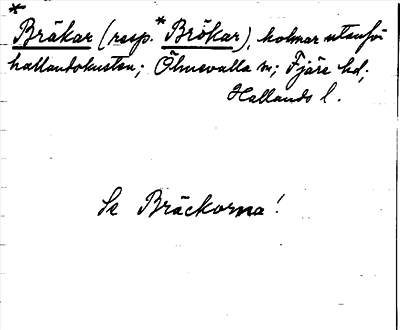 *Bräkar (resp. *Brökar), holmar utanför
hallandskusten; Ölmevalla sn; Fjäre hd;
Hallands l.
Se Bräckorna!